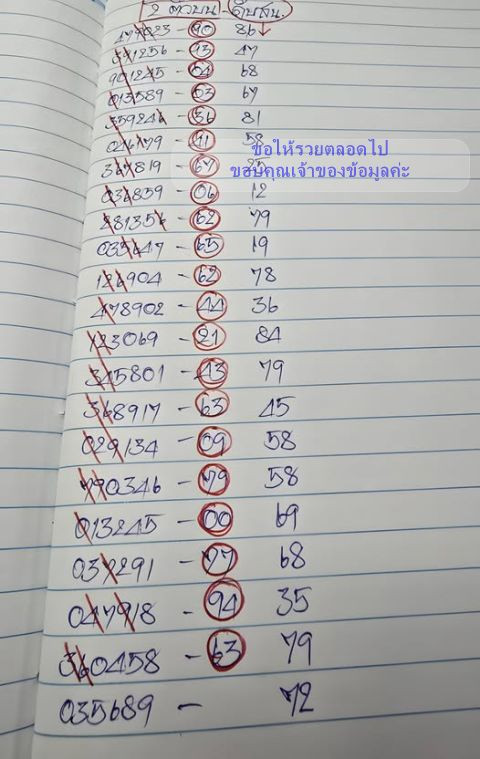 2 ตัวบน - ดับสน.
479023 - 90 86
371256 - 13 47
901245 - 04 68
013589 - 53 67
359246 - 36 81
026179 - 41 58
ขอให้รวยตลอดไป
367819 - 67 25
ขอบคุณเจ้าของข้อมูลค่ะ
036839 - 06 12
281356 - 62 79
035647 - 65 19
126904 - 62 78
478902 - 44 36
123069 - 21 84
345801 - 43 79
368917 - 63 45
029134 - 09 58
790346 - 79 58
013245 - 00 69
037291 - 77 68
047918 - 94 35
360458 - 63 79
035689 - 72